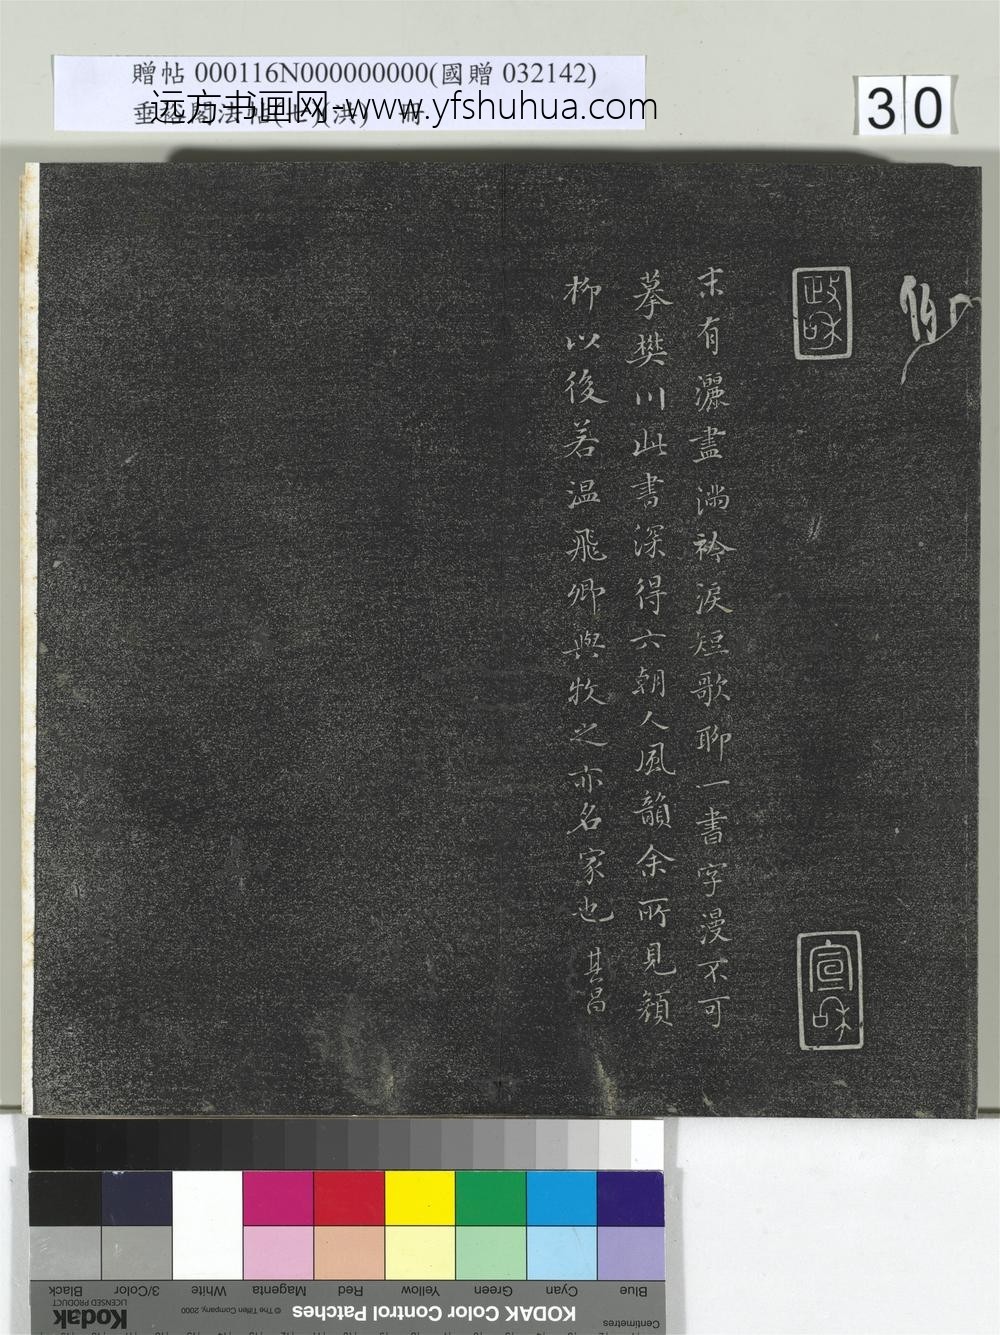 贈帖 000116N000000000(國贈 032142)
远方书画网-www.yfshuhua.com
30
政和
宣和
末有灑盡滿衿淚短歌聊一書字漫不可
摹樊川此書深得六朝人風韻余所見顏
柳以後若温飛卿與牧之亦名家也 其昌
Blue
Cyan
Green
Yellow
Red
Magenta
White
3/Color
Black
Centimetres
KODAK Color Control Patches
© The Tiffen Company, 2000
Kodak
LICENSED PRODUCT